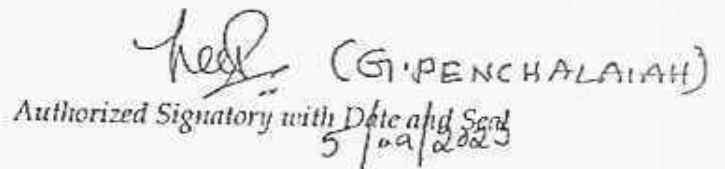 (G.PENCHALAIAH)
Authorized Signatory with Date and Seal
5/09/2023